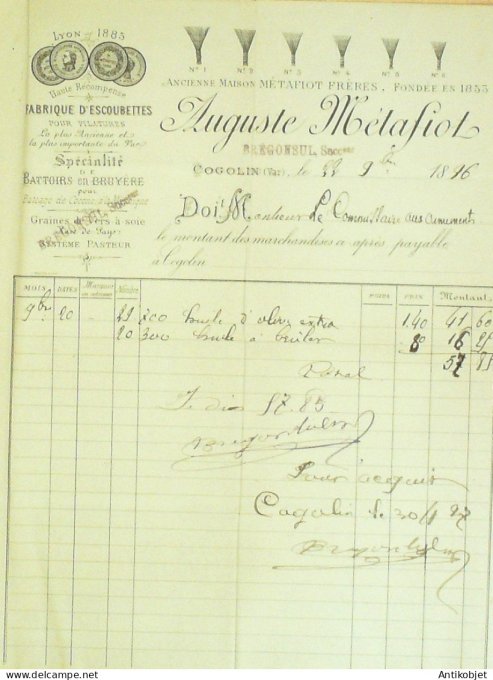 LYON 1885
Haute Récompense
FABRIQUE D'ESCOUBETTES
POUR FILATURES
La plus Ancienne et
la plus importante du Var
Spécialité
DE
BATTOIRS EN BRUYÈRE
pour
Graines de Vers à soie
Race de Pays
SYSTÈME PASTEUR
N° 1 N° 2 N° 3 N° 4 N° 5 N° 6
ANCIENNE MAISON MÉTAFIOT FRÈRES, FONDÉE EN 1855
Auguste Métafiot
BREGONSUL, Succeur
COGOLIN (Var), le 22 9bre 1896
Doit Monsieur Le Commissaire aux armements
le montant des marchandises ci après payable
à Cogolin
MOIS DATES Nombre POIDS PRIX Montant
9bre 20 29 700 huile d'olive extra 1.40 41 60
20 300 huile à bruler 80 16 25
Total 57 85
57.85
Bregonsul
Pour acquit
Cogolin le 30/1 97
Bregonsul
© Antikobjet